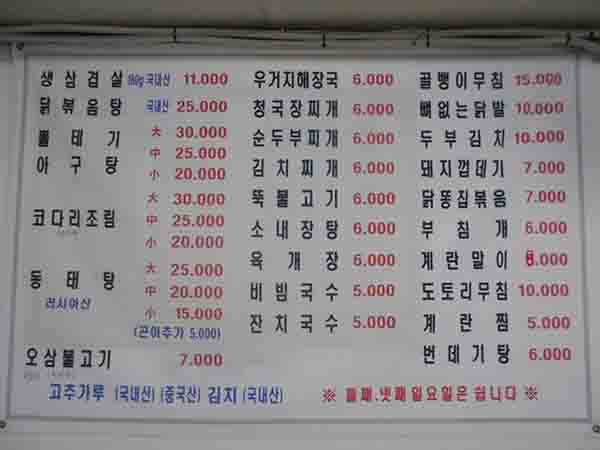 생삼겹살 180g 국내산 11.000
닭볶음탕 국내산 25.000
뽈테기 大 30.000
아구탕 中 25.000
小 20.000
코다리조림 大 30.000
中 25.000
小 20.000
동태탕 大 25.000
러시아산 中 20.000
小 15.000
(곤이추가 5.000)
오삼불고기 7.000
우거지해장국 6.000
청국장찌개 6.000
순두부찌개 6.000
김치찌개 6.000
뚝불고기 6.000
소내장탕 6.000
육개장 6.000
비빔국수 5.000
잔치국수 5.000
골뱅이무침 15.000
뼈없는닭발 10.000
두부김치 10.000
돼지껍데기 7.000
닭똥집볶음 7.000
부침개 6.000
계란말이 8.000
도토리무침 10.000
계란찜 5.000
번데기탕 6.000
고추가루 (국내산) (중국산) 김치 (국내산)
※ 넷째일요일은 쉽니다 ※